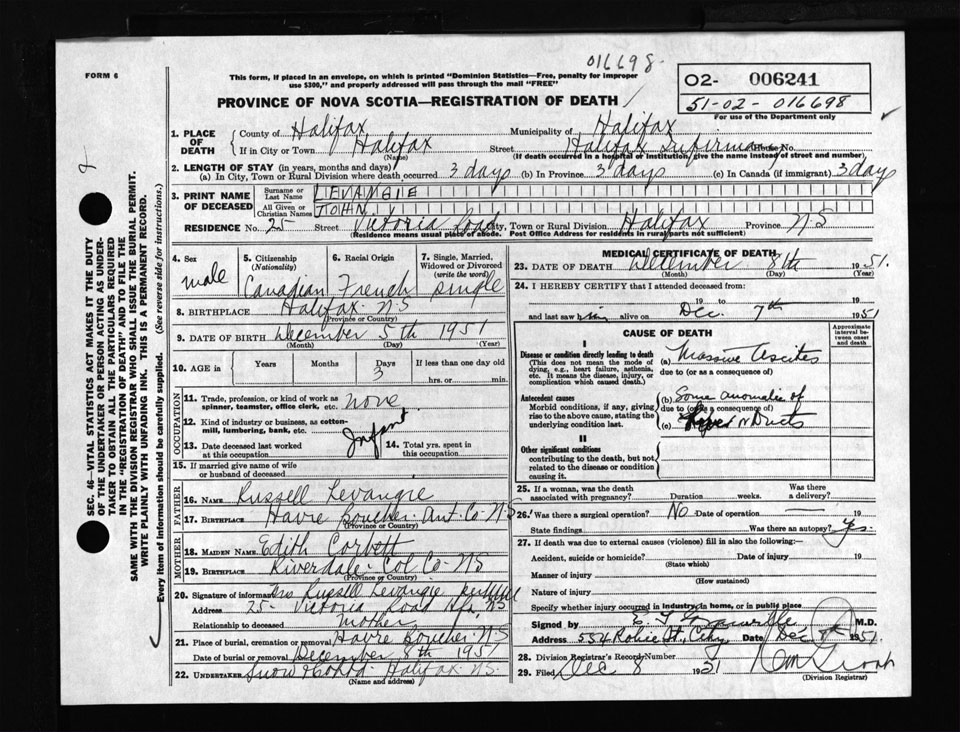 016698
FORM 6
This form, if placed in an envelope, on which is printed "Dominion Statistics—Free, penalty for improper
use $300," and properly addressed will pass through the mail "FREE"
02- 006241
51-02-016698
PROVINCE OF NOVA SCOTIA—REGISTRATION OF DEATH
For use of the Department only
1. PLACE OF DEATH
County of Halifax Municipality of Halifax
If in City or Town Halifax Street Halifax Infirmary House No.
(Name) (If death occurred in a hospital or institution, give the name instead of street and number)
2. LENGTH OF STAY (in years, months and days)
(a) In City, Town or Rural Division where death occurred 3 days (b) In Province 3 days (c) In Canada (if immigrant) 3 days
3. PRINT NAME OF DECEASED
Surname or Last Name LEVANGIE
All Given or Christian Names JOHN
RESIDENCE No. 25 Street Victoria Road City, Town or Rural Division Halifax Province NS
(Residence means usual place of abode. Post Office Address for residents in rural parts not sufficient)
4. Sex male
5. Citizenship (Nationality) Canadian
6. Racial Origin French
7. Single, Married, Widowed or Divorced (write the word) single
8. BIRTHPLACE Halifax NS
(Province or Country)
9. DATE OF BIRTH December 5th 1951
(Month) (Day) (Year)
10. AGE in Years Months Days 3 If less than one day old
hrs. or min.
OCCUPATION
11. Trade, profession, or kind of work as spinner, teamster, office clerk, etc. none
12. Kind of industry or business, as cotton-mill, lumbering, bank, etc. Infant
13. Date deceased last worked at this occupation
14. Total yrs. spent in this occupation
15. If married give name of wife or husband of deceased
FATHER
16. NAME Russell Levangie
17. BIRTHPLACE Havre Boucher Ant. Co. N-S
(Province or Country)
MOTHER
18. MAIDEN NAME Edith Corbett
19. BIRTHPLACE Riverdale Col Co NS
(Province or Country)
20. Signature of informant Mrs Russell Levangie
Address 25- Victoria Road Hfx NS
Relationship to deceased mother
21. Place of burial, cremation or removal Havre Boucher NS
Date of burial or removal December 8th 1951
22. UNDERTAKER Halifax NS.
(Name and address)
MEDICAL CERTIFICATE OF DEATH
23. DATE OF DEATH December 8th 1951.
(Month) (Day) (Year)
24. I HEREBY CERTIFY that I attended deceased from:
19 to 19
and last saw him alive on Dec. 7th 1951
CAUSE OF DEATH
Approximate interval between onset and death
I
Disease or condition directly leading to death
(This does not mean the mode of dying, e.g., heart failure, asthenia, etc. It means the disease, injury, or complication which caused death.)
(a) Massive Ascites
due to (or as a consequence of)
Antecedent causes
Morbid conditions, if any, giving rise to the above cause, stating the underlying condition last.
(b) Some anomalie of
due to (or as a consequence of)
(c) Liver or Ducts
II
Other significant conditions
contributing to the death, but not related to the disease or condition causing it.
25. If a woman, was the death associated with pregnancy? Duration weeks. Was there a delivery?
26. Was there a surgical operation? No Date of operation — 19
State findings Was there an autopsy? Yes.
27. If death was due to external causes (violence) fill in also the following:—
Accident, suicide or homicide? Date of injury 19
(State which)
Manner of injury
(How sustained)
Nature of injury
Specify whether injury occurred in industry, in home, or in public place
Signed by M.D.
Address 554 Robie St., City Date Dec 8th 1951
28. Division Registrar's Record Number
29. Filed Dec 8 1951
(Division Registrar)
SEC. 46—VITAL STATISTICS ACT MAKES IT THE DUTY
OF THE UNDERTAKER OR PERSON ACTING AS UNDER-
TAKER TO OBTAIN ALL THE PARTICULARS REQUIRED
IN THE "REGISTRATION OF DEATH" AND TO FILE THE
SAME WITH THE DIVISION REGISTRAR WHO SHALL ISSUE THE BURIAL PERMIT.
WRITE PLAINLY WITH UNFADING INK. THIS IS A PERMANENT RECORD.
Every item of information should be carefully supplied. (See reverse side for instructions.)